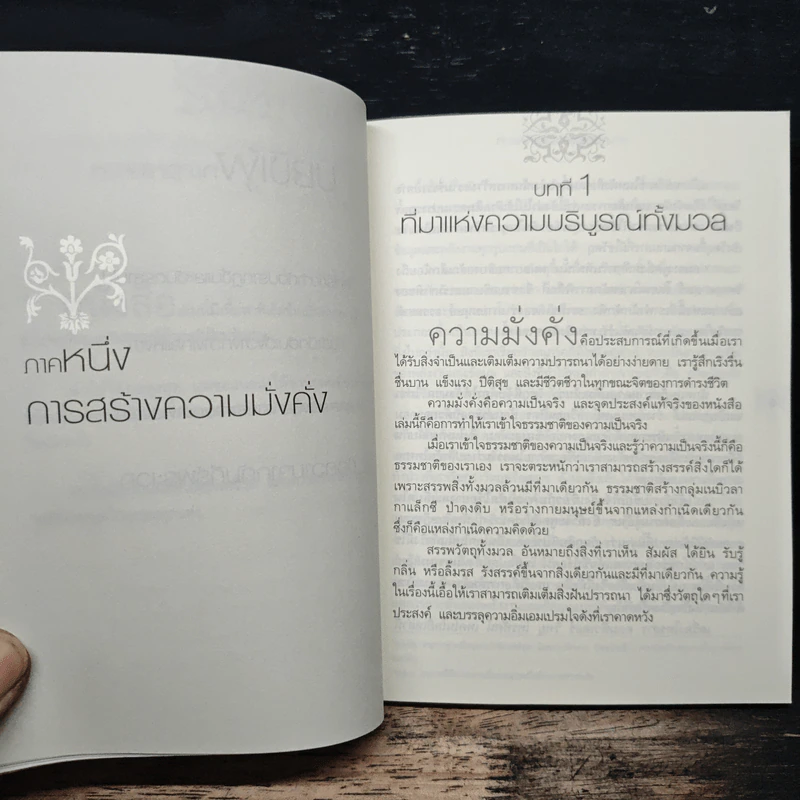 ภาคหนึ่ง
การสร้างความมั่งคั่ง
บทที่ 1
ที่มาแห่งความบริบูรณ์ทั้งมวล
ความมั่งคั่งคือประสบการณ์ที่เกิดขึ้นเมื่อเรา
ได้รับสิ่งจำเป็นและเติมเต็มความปรารถนาได้อย่างง่ายดาย เรารู้สึกเริงรื่น
ชื่นบาน แข็งแรง ปีติสุข และมีชีวิตชีวาในทุกขณะจิตของการดำรงชีวิต
ความมั่งคั่งคือความเป็นจริง และจุดประสงค์แท้จริงของหนังสือ
เล่มนี้ก็คือการทำให้เราเข้าใจธรรมชาติของความเป็นจริง
เมื่อเราเข้าใจธรรมชาติของความเป็นจริงและรู้ว่าความเป็นจริงนี้ก็คือ
ธรรมชาติของเราเอง เราจะตระหนักว่าเราสามารถสร้างสรรค์สิ่งใดก็ได้
เพราะสรรพสิ่งทั้งมวลล้วนมีที่มาเดียวกัน ธรรมชาติสร้างกลุ่มเนบิวลา
กาแล็กซี ป่าดงดิบ หรือร่างกายมนุษย์ขึ้นจากแหล่งกำเนิดเดียวกัน
ซึ่งก็คือแหล่งกำเนิดความคิดด้วย
สรรพวัตถุทั้งมวล อันหมายถึงสิ่งที่เราเห็น สัมผัส ได้ยิน รับรู้
กลิ่น หรือลิ้มรส รังสรรค์ขึ้นจากสิ่งเดียวกันและมีที่มาเดียวกัน ความรู้
ในเรื่องนี้เอื้อให้เราสามารถเติมเต็มสิ่งฝันปรารถนา ได้มาซึ่งวัตถุใดๆที่เรา
ประสงค์ และบรรลุความอิ่มเอมเปรมใจดังที่เราคาดหวัง